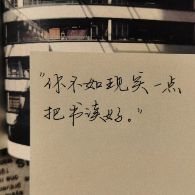 “你不如现实一点
把书读好。”